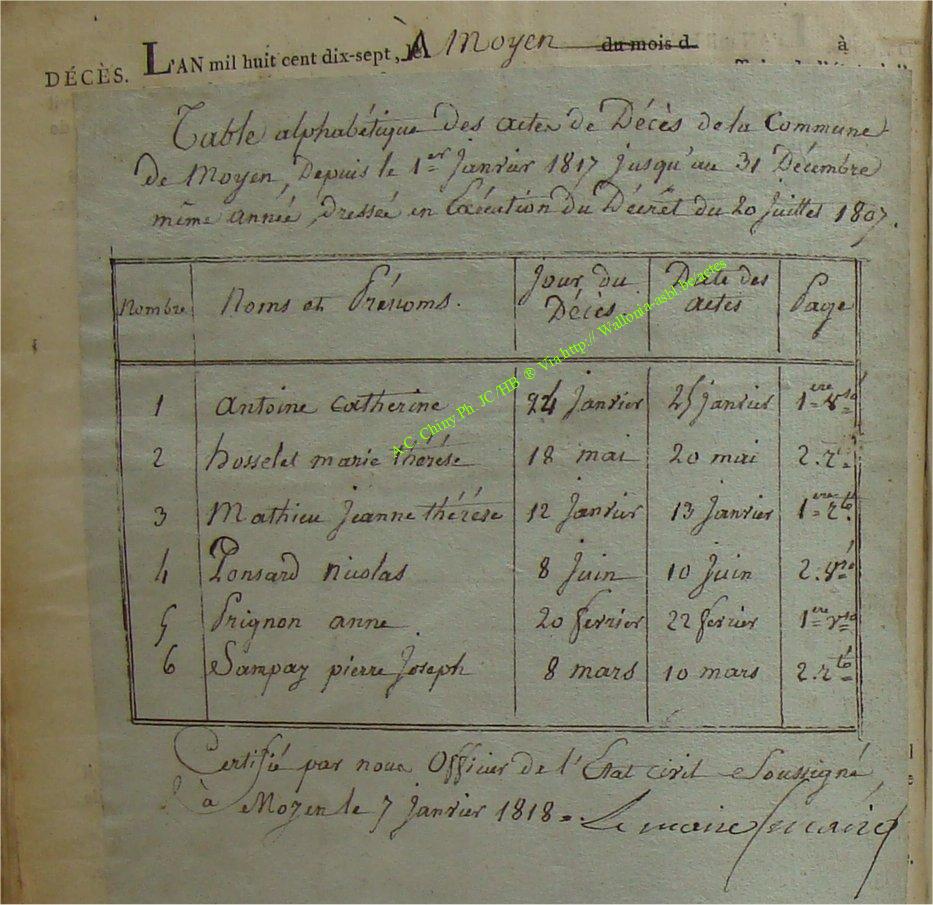 DÉCÈS. L'AN mil huit cent dix-sept, le A Moyen du mois d à
Table alphabétique des actes de Décès de la Commune
de Moyen, Depuis le 1er Janvier 1817 jusqu'au 31 Décembre
même année, dressée en Exécution du Décret du 20 Juillet 1807.
Nombre Noms et Prénoms. Jour du Décès Date des actes Page
1 Antoine Catherine 24 Janvier 25 Janvier 1ere vso
2 hosselet marie thérése 18 mai 20 mai 2. rto
3 Mathieu Jeanne thérése 12 Janvier 13 Janvier 1ere rto
4 Ponsard nicolas 8 Juin 10 Juin 2. vso
5 Prignon anne 20 fevrier 22 fevrier 1ere vso
6 Sampay pierre Joseph 8 mars 10 mars 2. rto
Certifié par nous Officier de l'Etat civil Soussigné
à Moyen le 7 Janvier 1818 =. Lemaire
A.C. Chiny.Ph. JC/HB ® Via http:// Wallonia-asbl.be/actes